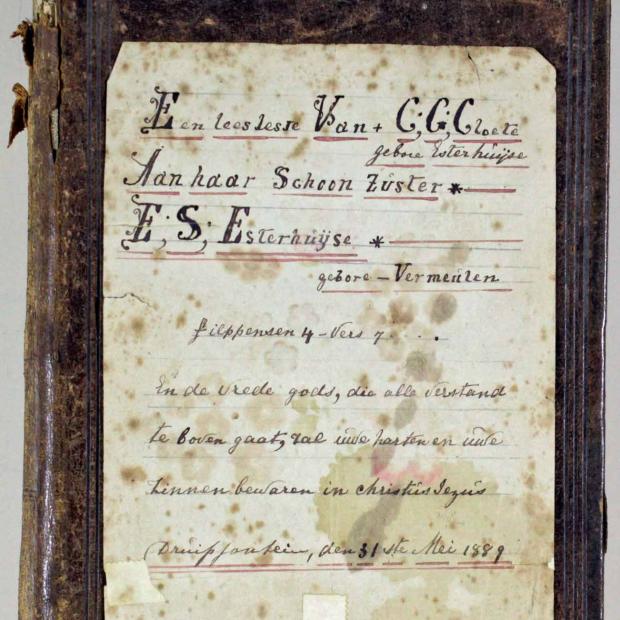 Een leeslesje Van + C; G; Cloete
gebore Esterhuijse
Aan haar Schoon Züster *
E; S; Esterhuijse *
gebore - Vermeulen
filppensen 4 - Vers 7 . . .
En de vrede gods, die alle verstand
te boven gaat, zal uwe harten en uwe
zinnen bewaren in christus Jezus
Druipfontein, den 31ste Mei 1889